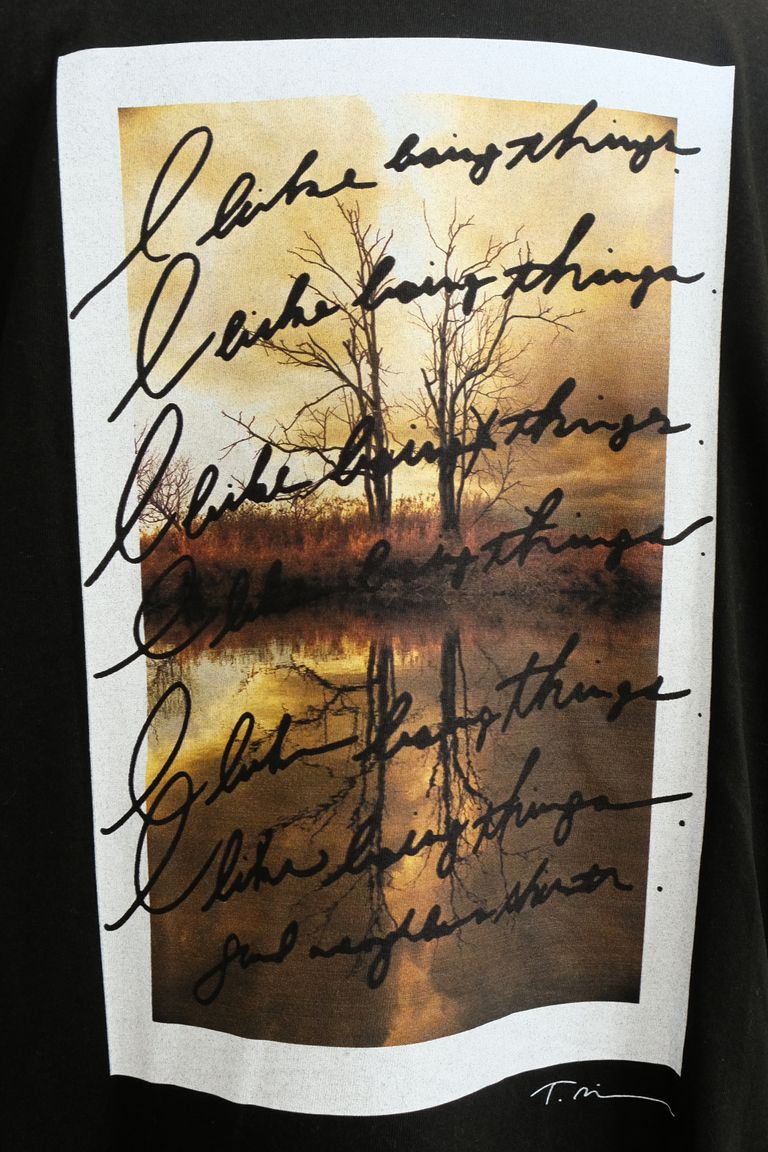 I like boring things
I like boring things.
I like boring things.
I like boring things.
I like boring things.
I like boring things.
good neighbors
T.